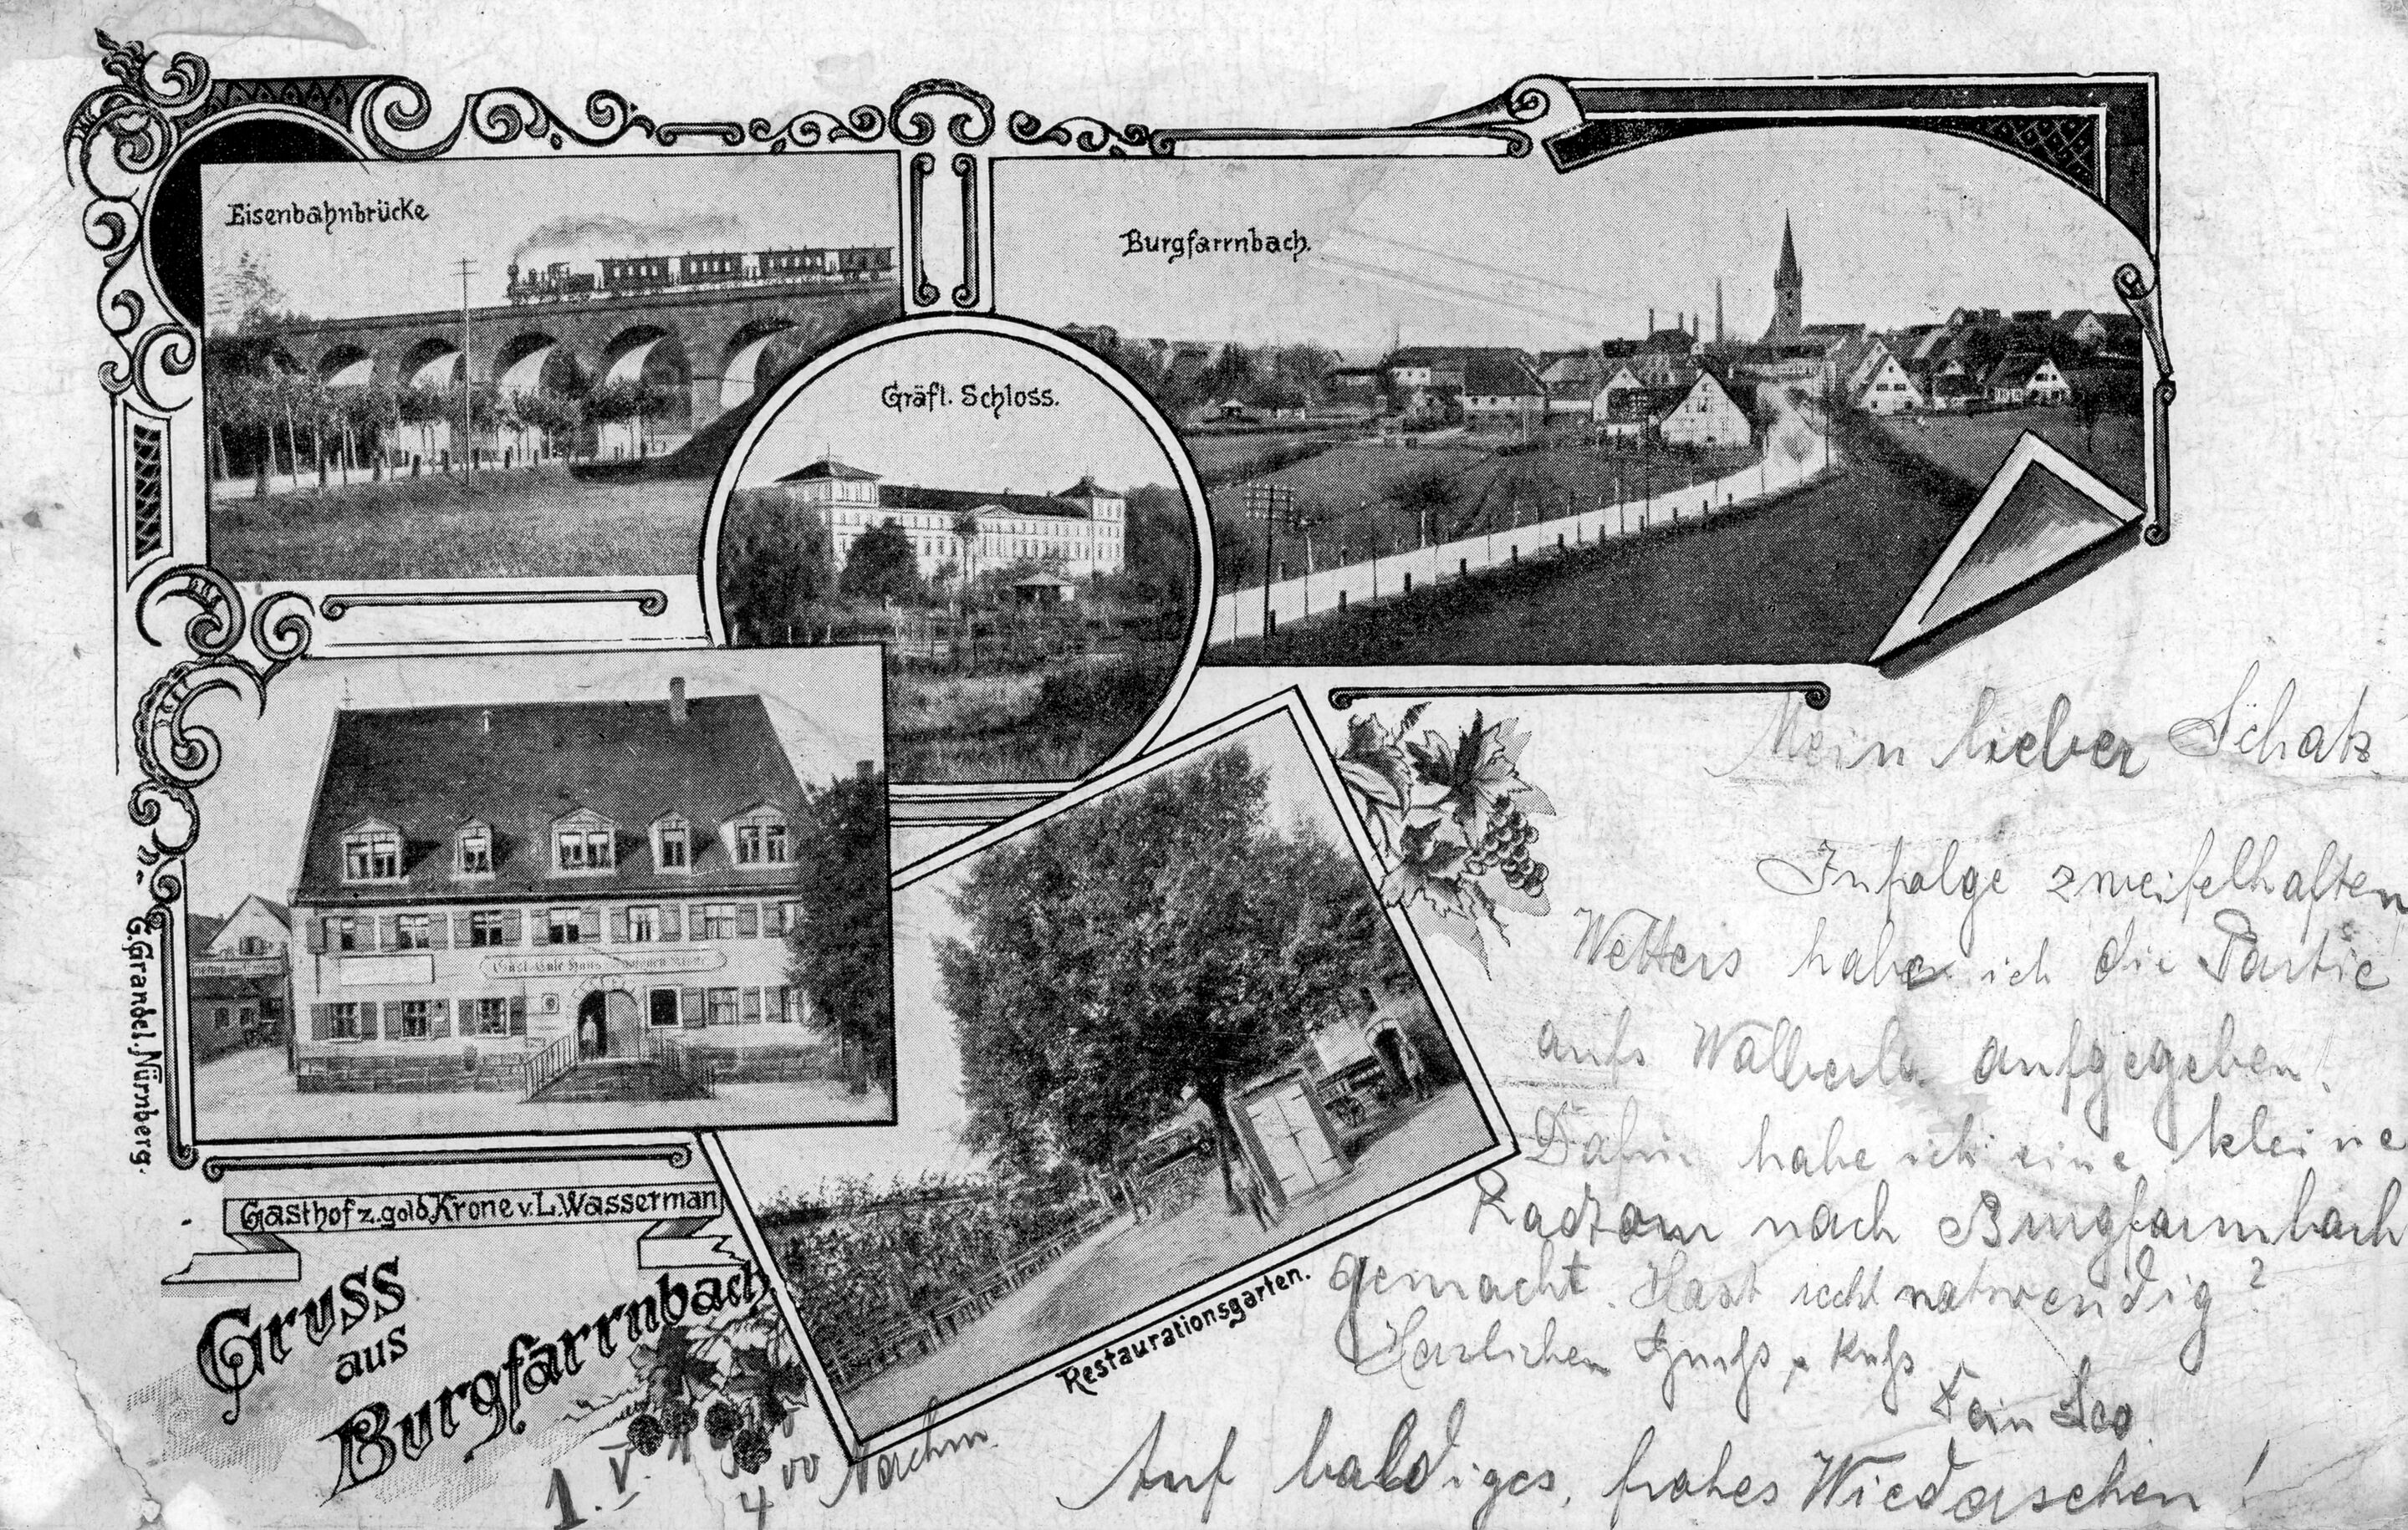 Eisenbahnbrücke
Burgfarrnbach.
Gräfl. Schloss.
G. Grandel, Nürnberg.
Gasthof z. gold. Krone v. L. Wasserman
Gruss
aus
Burgfarrnbach.
Restaurationsgarten.
Mein lieber Schatz
Infolge zweifelhaften
Wetters habe ich die Partie
aufs Walberla aufgegeben!
Dafür habe ich eine kleine
Radtour nach Burgfarrnbach
gemacht. Hast recht notwendig?
Herzlichen Gruß & Kuß
Dein Leo.
Auf baldiges, frohes Wiedersehen!
1. V.
4 00 Nachm.